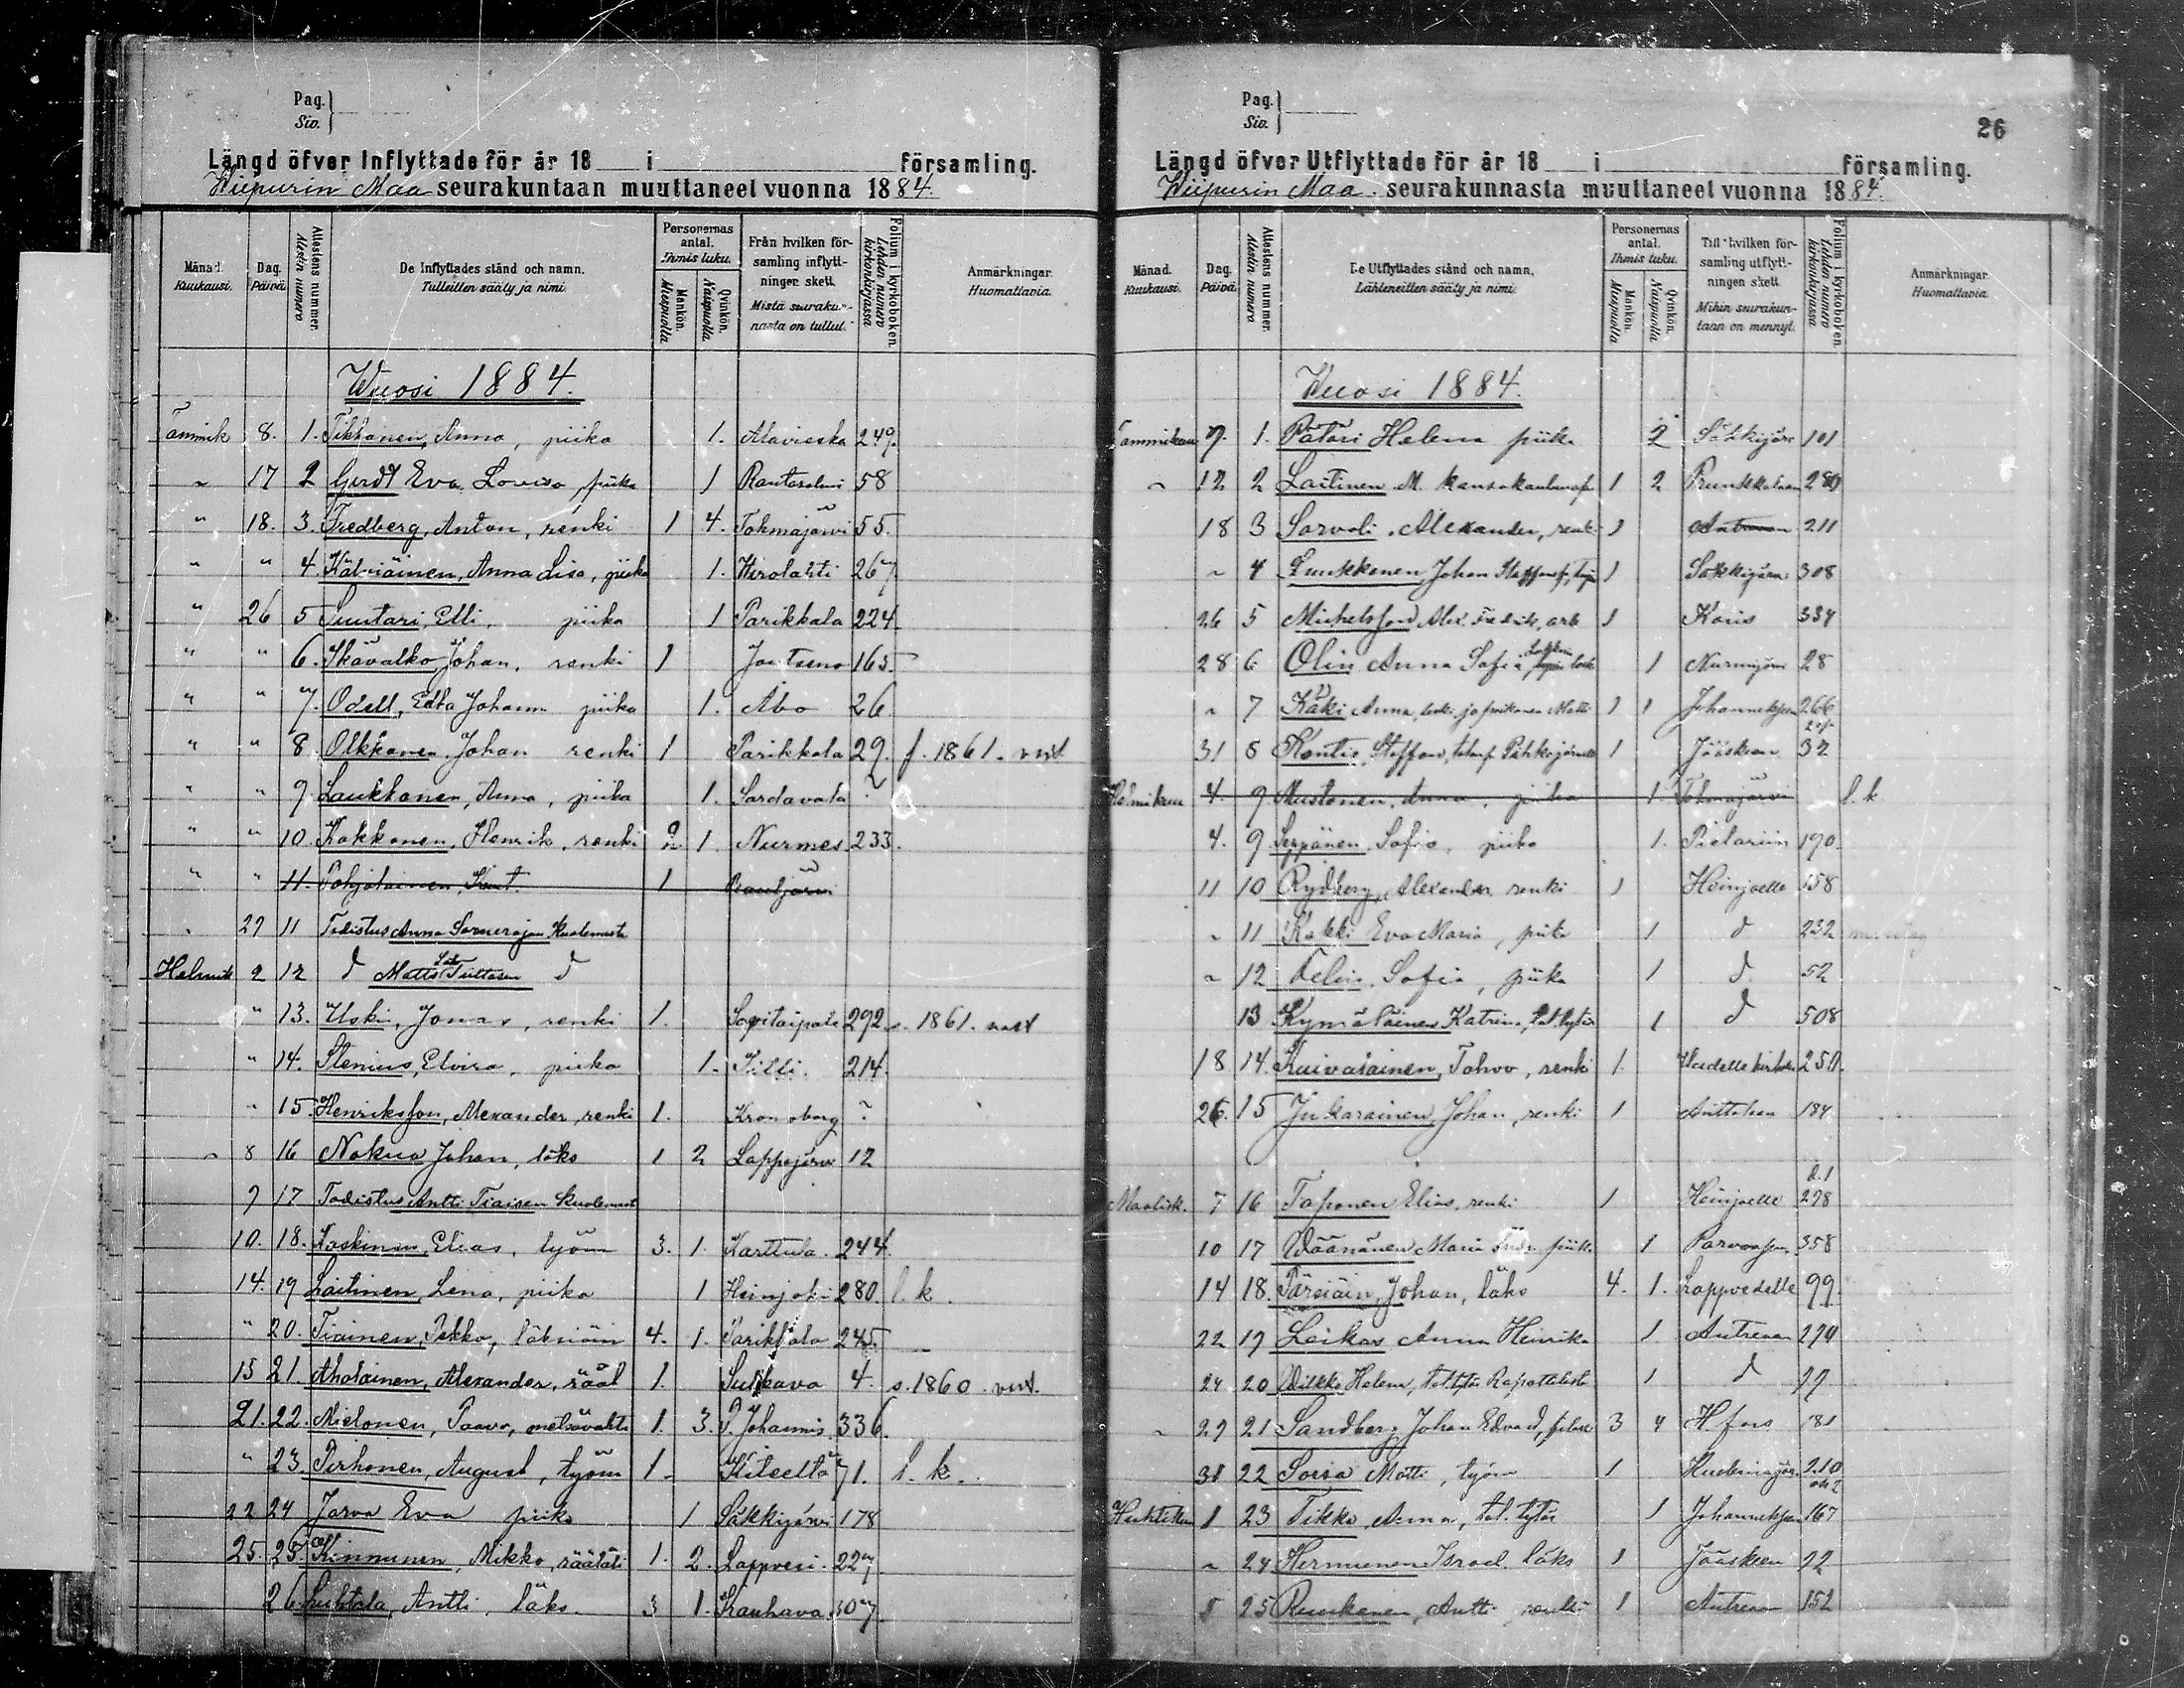 Pag.
Siv.
Längd öfver Inflyttade för år 18 i församling.
Wiipurin Maa seurakuntaan muuttaneet vuonna 1884.
Månad. Kuukausi.
Dag. Päivä.
Attestens nummer. Atestin numero
De Inflyttades stånd och namn. Tulleitten sääty ja nimi
Personernas antal. Ihmis luku.
Mankön. Miespuolia
Qvinkön. Naispuolia
Från hvilken församling inflyttningen skett. Mistä seurakunnasta on tullut.
Folium i kyrkoboken. Lehden numero kirkonkirjassa
Anmärkningar. Huomattavia.
Wuosi 1884.
Tammik 8. 1. Tikkanen, Anna, piika 1. Alavieska 249.
" 17 2 Gerdt Eva Lovisa, piika 1 Rantasalmi 58
" 18. 3. Fredberg, Anton, renki 1 4. Tohmajärvi 55.
" " 4. Kähriäinen, Anna Lisa, piika 1. Wirolahti 267
" 26 5 Suutari, Elli, piika 1 Parikkala 224
" " 6. Skävalko Johan, renki 1 Joutseno 165
" " 7. Odell, Edla Johanna piika 1. Åbo 26
" " 8. Olkkonen, Johan renki 1 Parikkala 29. f. 1861.
" " 9. Laukkanen, Anna, piika 1. Sordavala
" " 10. Kokkonen, Henrik, renki 2 1. Nurmes 233.
" " 11. Pohjalainen, 1 Rautjärvi
27 11 Todistus Anna Kuolemasta
Helmik 2 12 d Matts Tiittasen d
" 13. Uski, Jonas, renki 1. Savitaipale 292. s. 1861.
" 14. Stenius, Elvira, piika 1. 214.
" 15. Henriksson, Alexander, renki 1. Kronoborg ?
" 8 16 Nokua Johan, läks 1 2 Lappajärvi 12
9 17 Todistus Antti Tiaisen kuolemast
10. 18. Koskinen, Elias, työm 3. 1. Karttula. 244.
14. 19 Laitinen, Lena, piika 1 Heinjoki 280. l. k.
" 20. Tiainen, Pekka, läksiäin 4. 1. Parikkala 245.
15 21. Aholainen, Alexander, rääl 1. Sulkava 4. s. 1860
21. 22. Mielonen, Paavo, metsävahti 1. 3. S. Johannis. 336.
" 23. Pirhonen, August, työm 1. Kiteeltä 71. l. k.
22 24 Jarva Eva piika 1 Säkkijärvi 178
25. 25. Kinnunen, Mikko, räätäli 1. 2. Lappvesi 227.
26. Luhtala, Antti, läks. 3 1. Kauhava 307.
26
Pag.
Siv.
Längd öfver Utflyttade för år 18 i församling.
Wiipurin Maa. seurakunnasta muuttaneet vuonna 1884.
Månad. Kuukausi.
Dag. Päivä.
Attestens nummer. Atestin numero
De Utflyttades stånd och namn. Lähteneitten sääty ja nimi.
Personernas antal. Ihmis luku.
Mankön. Miespuolia
Qvinkön. Naispuolia
Till hvilken församling utflyttningen skett. Mihin seurakuntaan on mennyt.
Folium i kyrkoboken. Lehden numero kirkonkirjassa
Anmärkningar. Huomattavia.
Wuosi 1884.
Tammikuu 7. 1. Pätäri Helena piika 2 Säkkijärv 101
" 12 2 Laitinen M. 1 2 Prunkkalaan 280
18 3 Sorvali, Alexander, renki 1 211
" 4 Luukkonen, Johan 1 Säkkijärv 308
26 5 Michelsson Alex. Fredrik, arb 1 Karis 334
28 6 Olin Anna Sofia 1 Nurmijärvi 28
" 7 Käki Anna, leski ja poikansa Matti 1 1 Johannekseen 266
31 8 Kontio, Staffan, 1 Jääskeen 32
Helmikuu 4. 9 Mustonen, Anna, piika 1. Tohmajärvi l. k
4. 9 Seppänen, Sofia, piika 1. Pielaviin 190.
11 10 Rydberg, Alexander renki 1 Heinjoelle 158
" 11 Kokki Eva Maria, piika 1 d 232
" 12 Felin, Sofia, piika 1 d 52
13 Kymäläinen Katrina, tal. tytär 1 d 508
18 14. Kuivalainen, Tahvo, renki 1. Uudelle kirkolle 250.
26. 15 Jukarainen Johan, renki 1 Anttolaan 184
Maalisk. 7 16 Taponen Elias, renki 1 Heinjoelle 278
10 17 Wäänänen Maria piika 1 358
14 18. Pärsiäin, Johan, läks 4. 1. Lappvedelle 99.
22 19 Leikas Anna Heinrika 1 Antrean 270
24 20 Wilkko Helena, tal. tytär 1 d 77
" 27 21 Sandberg Johan Edvard, 3 4 H fors 181
31 22 Sorsa Matti, työm 1 210
Huhtikuu 1 23 Tikka Anna, tal. tytär 1 Johannekseen 167
" 24 Hermunen Israel läks 1 Jääskeen 22
8 25 Ruukanen, Antti renki 1 Antrean 152